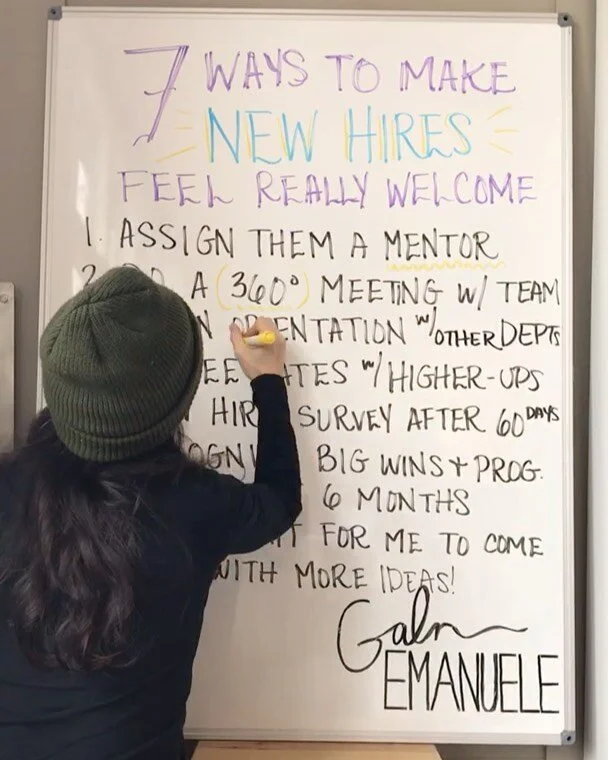 7 WAYS TO MAKE
NEW HIRES
FEEL REALLY WELCOME
1. ASSIGN THEM A MENTOR
2. A 360° MEETING W/ TEAM
ORIENTATION W/ OTHER DEPTS
W/ HIGHER-UPS
HIRE SURVEY AFTER 60 DAYS
BIG WINS + PROG.
6 MONTHS
FOR ME TO COME
WITH MORE IDEAS!
Galen
EMANUELE